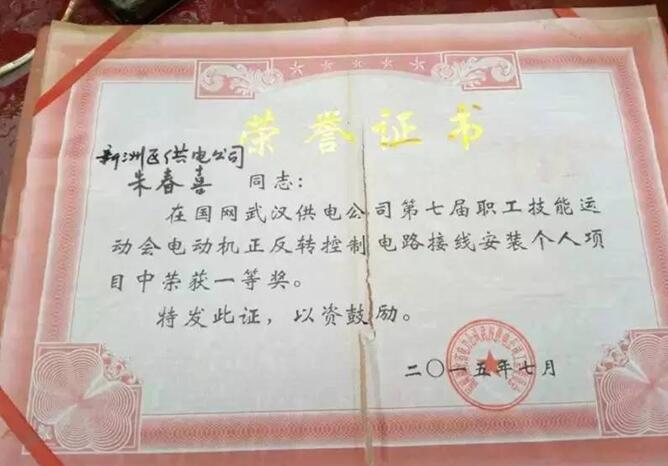 荣誉证书
新洲区供电公司
朱春喜 同志:
在国网武汉供电公司第七届职工技能运
动会电动机正反转控制电路接线安装个人项
目中荣获一等奖。
特发此证，以资鼓励。
二〇一五年七月